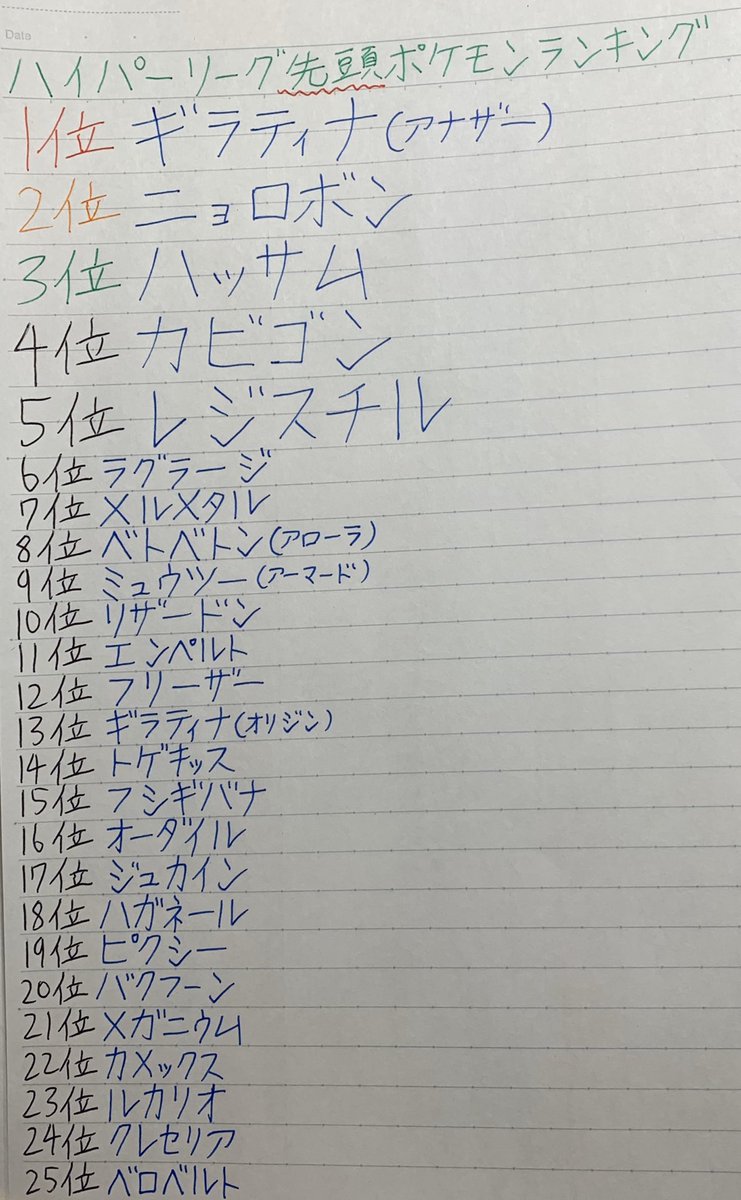 Date
ハイパーリーグ先頭ポケモンランキング
1位 ギラティナ(アナザー)
2位 ニョロボン
3位 ハッサム
4位 カビゴン
5位 レジスチル
6位 ラグラージ
7位 メルメタル
8位 ベトベトン(アローラ)
9位 ミュウツー(アーマード)
10位 リザードン
11位 エンペルト
12位 フリーザー
13位 ギラティナ(オリジン)
14位 トゲキッス
15位 フシギバナ
16位 オーダイル
17位 ジュカイン
18位 ハガネール
19位 ピクシー
20位 バクフーン
21位 メガニウム
22位 カメックス
23位 ルカリオ
24位 クレセリア
25位 ベロベルト